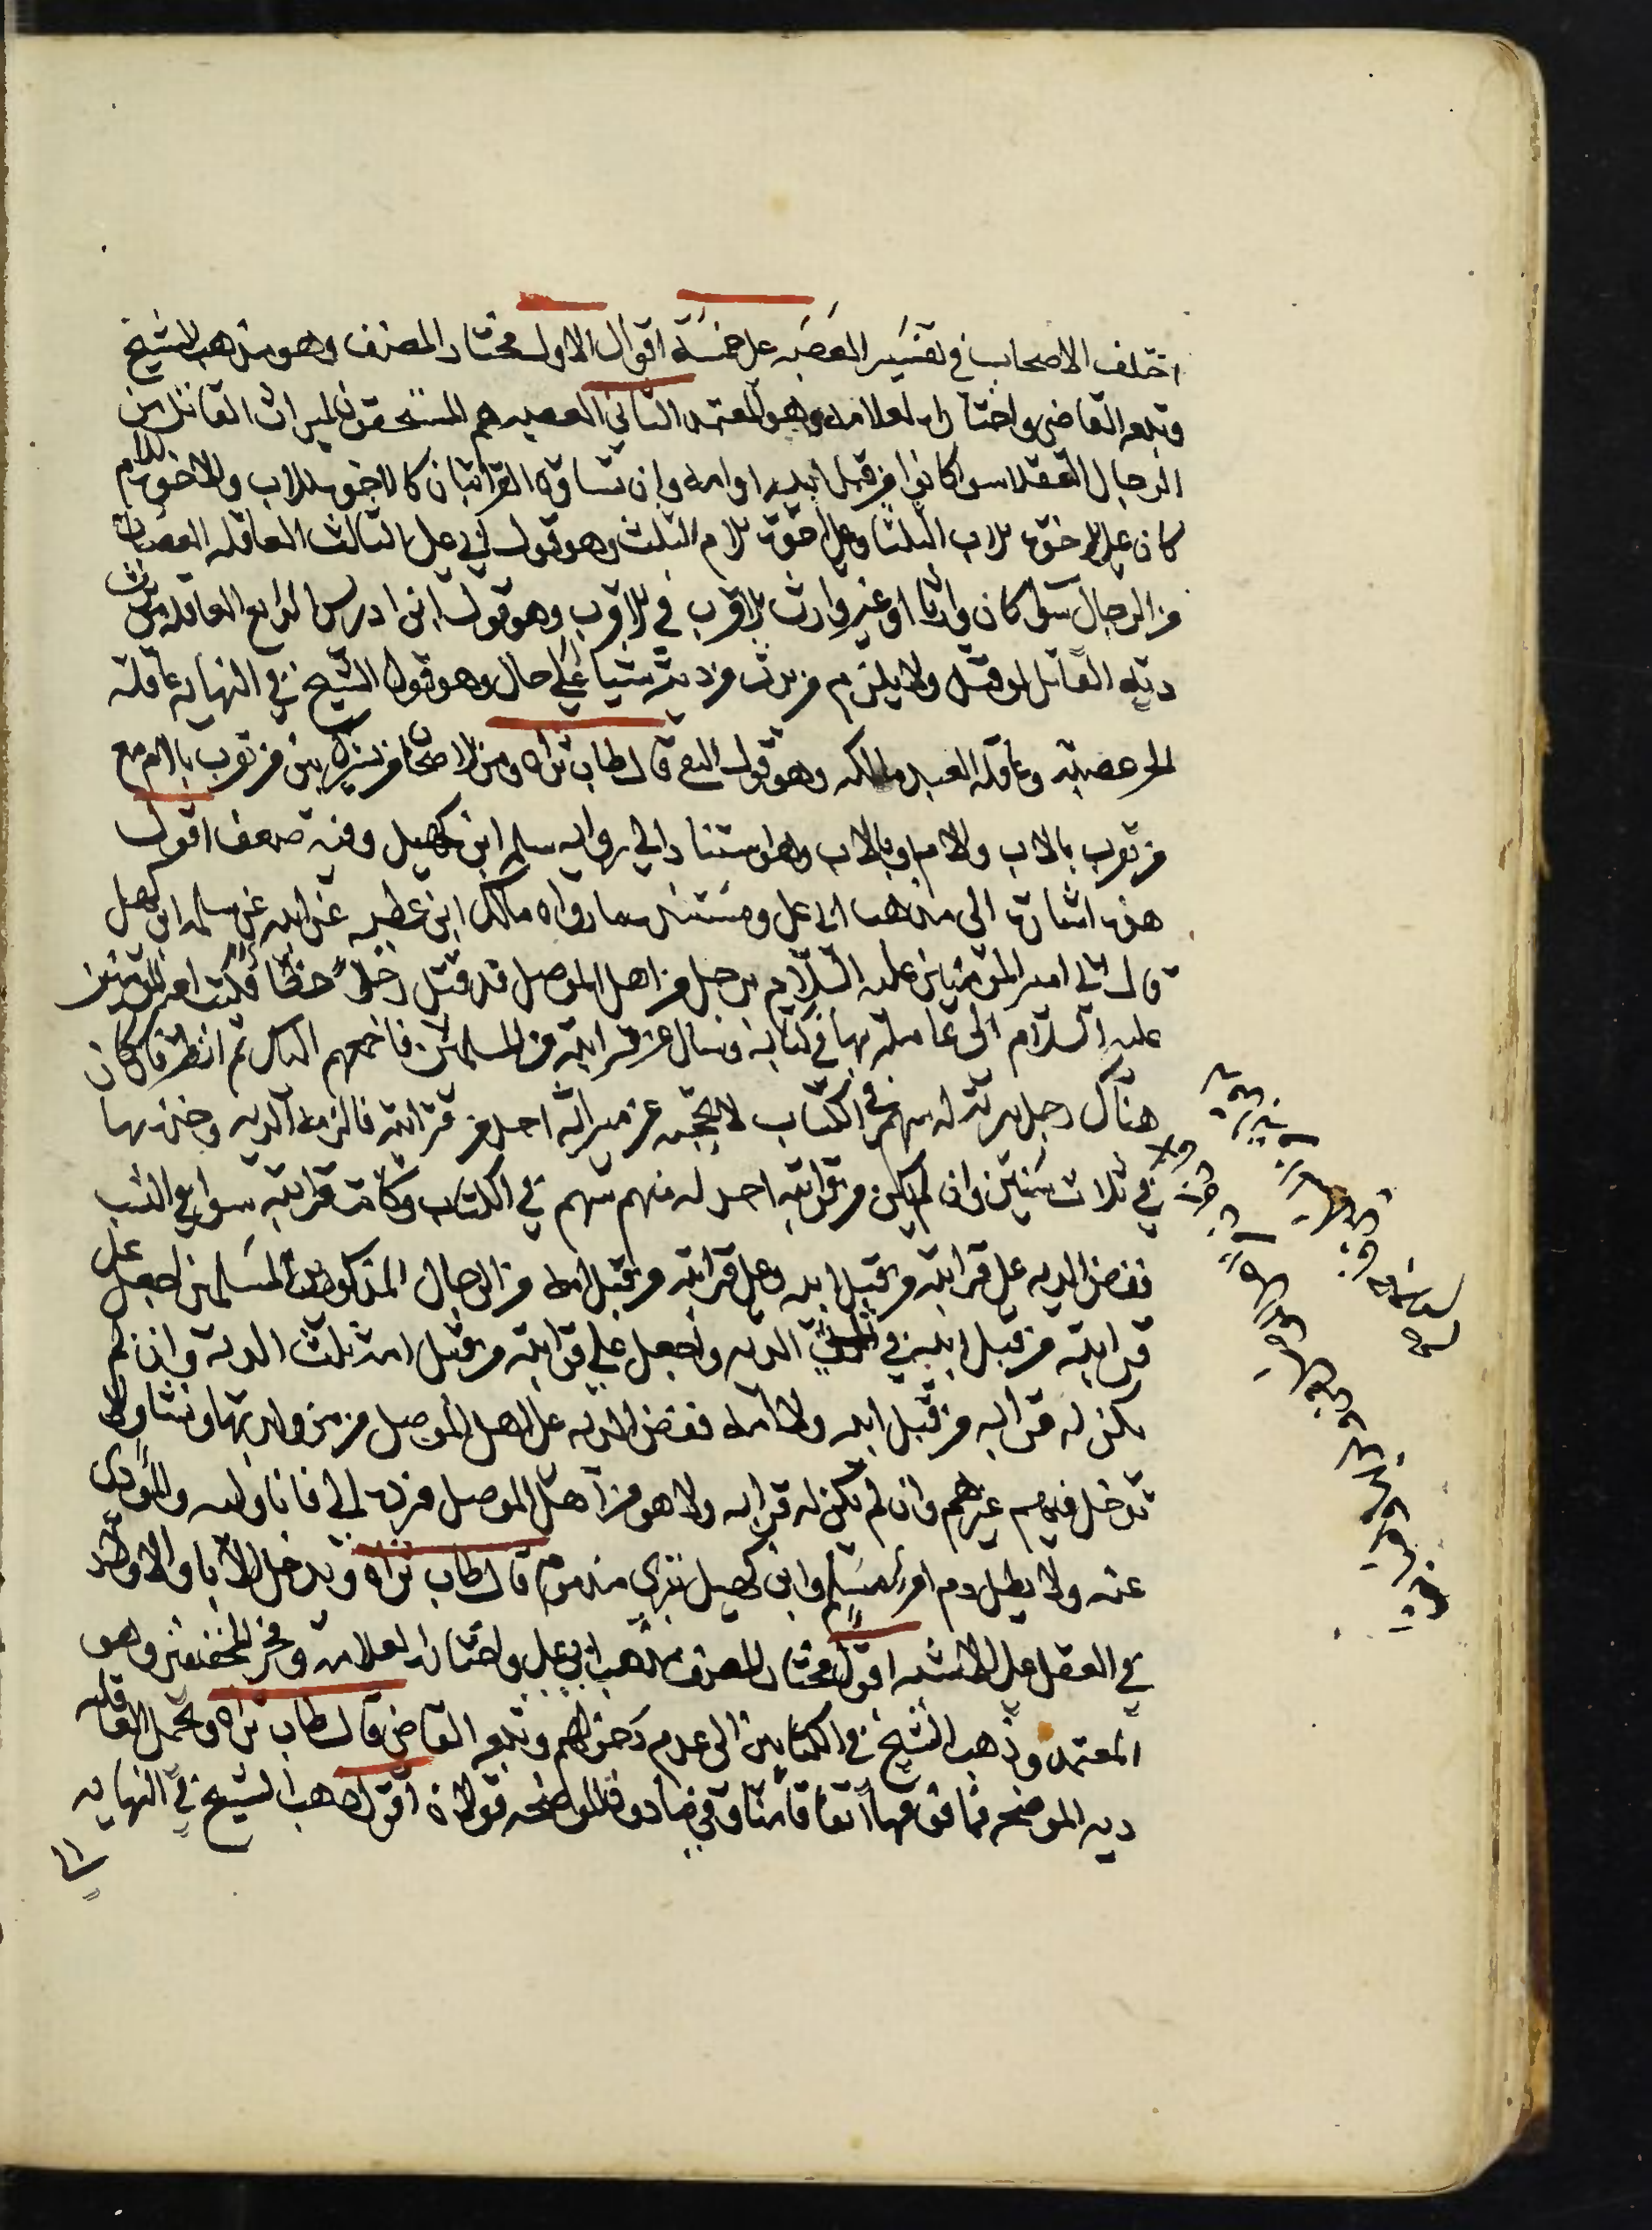 اختلف الاصحاب في تفسير العصبه على خمسة اقوال الاول مختار المصنف وهو مذهب الشيخ
وتبعه القاضي واختاره العلامه وهو المعتمد الثاني العصبه هم المستحقون لميراث القاتل من
الرجال العقلا سوا كانوا من قبل ابيه او امه وان تساوه القرابتان كالاخوه للاب والاخوه للام
كان على الاخوة للاب الثلثا وعلى الاخوة للام الثلث وهو قول ابي علي الثالث العاقله العصبات
من الرجال سوا كان وارثا او غير وارث الاقرب فالاقرب وهو قول ابن ادريس الرابع العاقله من يرث
دية القاتل لو قتل ولا يلزم من يرث من ديته شيا على حال وهو قول الشيخ في النهايه عاقلة
الحر عصبته وعاقلة العبد مالكه وهو قول التقي قال طاب ثراه ومن الاصحاب من يشرك بين من تقرب بالام مع
من تقرب بالاب والام او بالاب وهو استنادا الى روايه سلمه ابن كهيل وفيه ضعف اقول
هذه اشارة الى مذهب ابي علي ومستنده ما رواه مالك ابن عطيه عن ابيه عن سلمه ابن كهيل
قال اتي امير المؤمنين عليه السلام برجل من اهل الموصل قد قتل رجلا خطا فكتب امير المؤمنين
عليه السلام الى عامله بها في كتابه وسال عن قرابته من المسلمين فاجمعهم اليك ثم انظر فان كان
هناك رجل يرثه له سهم في الكتاب لا يحجبه عن ميراثه احد من قرابته فالزمه الديه وخذه بها
في ثلاث سنين وان لم يكن من قرابته احد له منهم سهم في الكتاب وكانت قرابته سوا في النسب
ففض الديه على قرابته من قبل ابيه وعلى قرابته من قبل امه من الرجال المذكورين المسلمين اجعل على
قرابته من قبل ابيه ثلثي الديه واجعل على قرابته من قبل امه ثلث الدية وان لم
يكن له قرابه من قبل ابيه ولا امه ففض الديه على اهل الموصل ممن ولد بها ونشا ولا
تدخل فيهم غيرهم وان لم يكن له قرابه ولا هو من اهل الموصل فرده الي فانا وليه والمؤدي
عنه ولا يطل دم امرئ مسلم وابن كهيل بتري مذموم قال طاب ثراه ويدخل الابا والاولاد
في العقل على الاشبه اقول مختار المصنف مذهب ابي علي واختاره العلامه وفخر المحققين وهو
المعتمد وذهب الشيخ في الكتابين الى عدم دخولهم وتبعه القاضي قال طاب ثراه وتحمل العاقله
ديه الموضحه فما فوقها اتفاقا منا وفي ما دون الموضحه قولان اقول ذهب الشيخ في النهايه